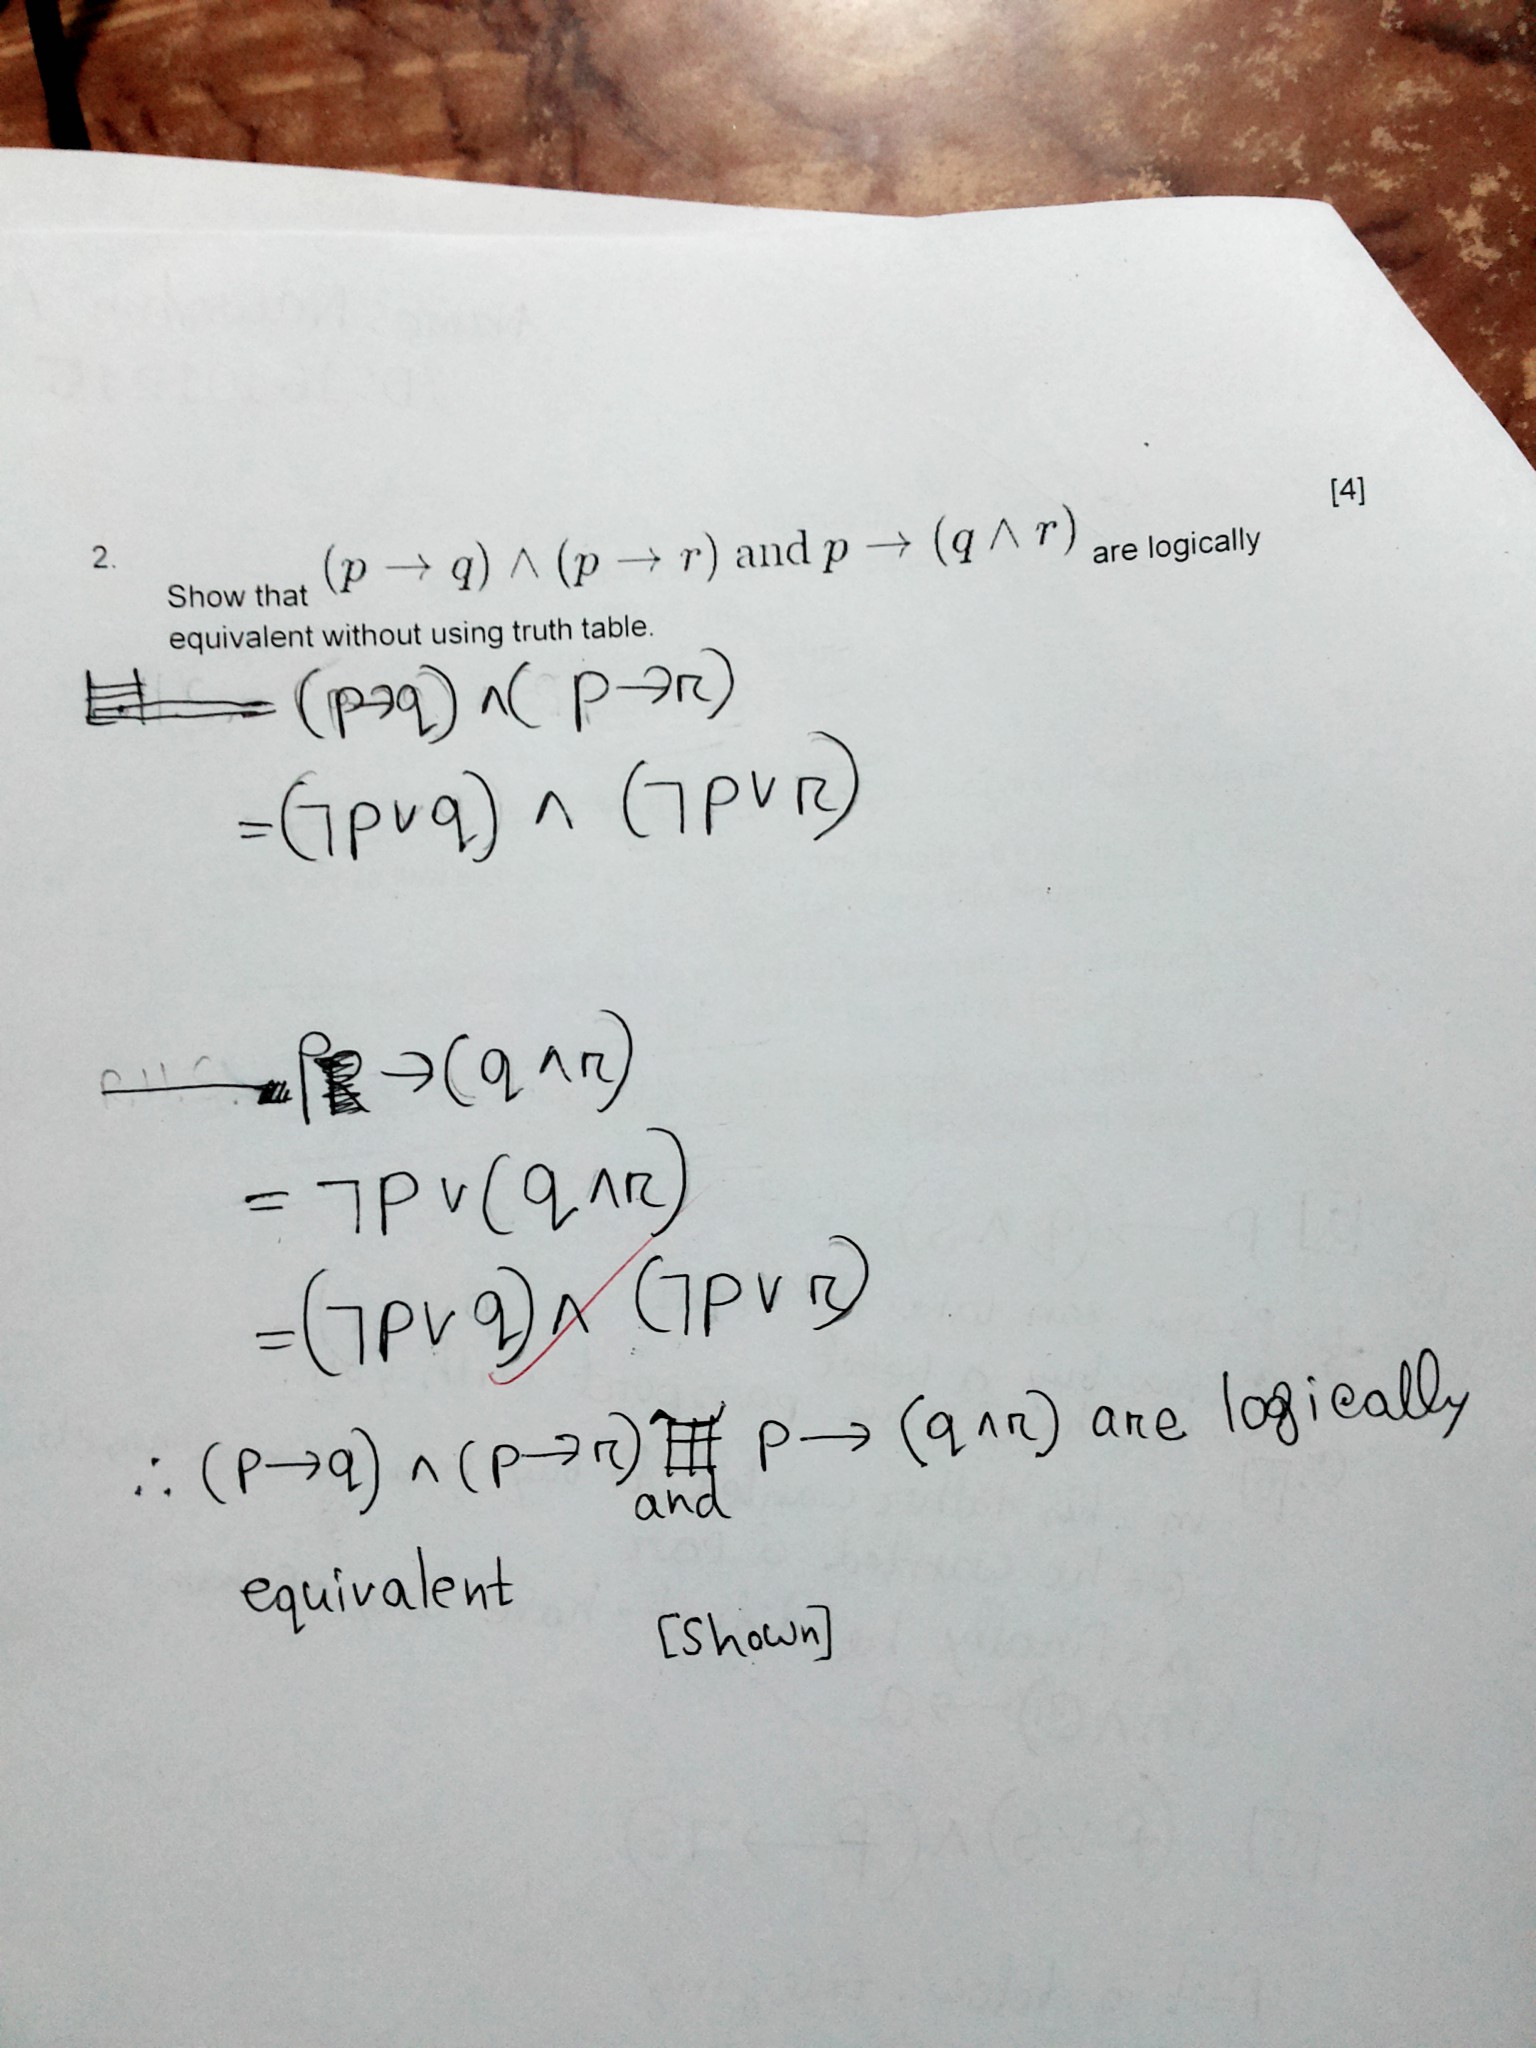 [4]
2. Show that (p → q) ∧ (p → r) and p → (q ∧ r) are logically
equivalent without using truth table.
(p→q) ∧ (p→r)
=(¬p∨q) ∧ (¬p∨r)
p →(q ∧r)
= ¬p∨(q∧r)
=(¬p∨q)∧ (¬p∨r)
∴ (p→q) ∧ (p→r) and p→ (q∧r) are logically
equivalent
[Shown]